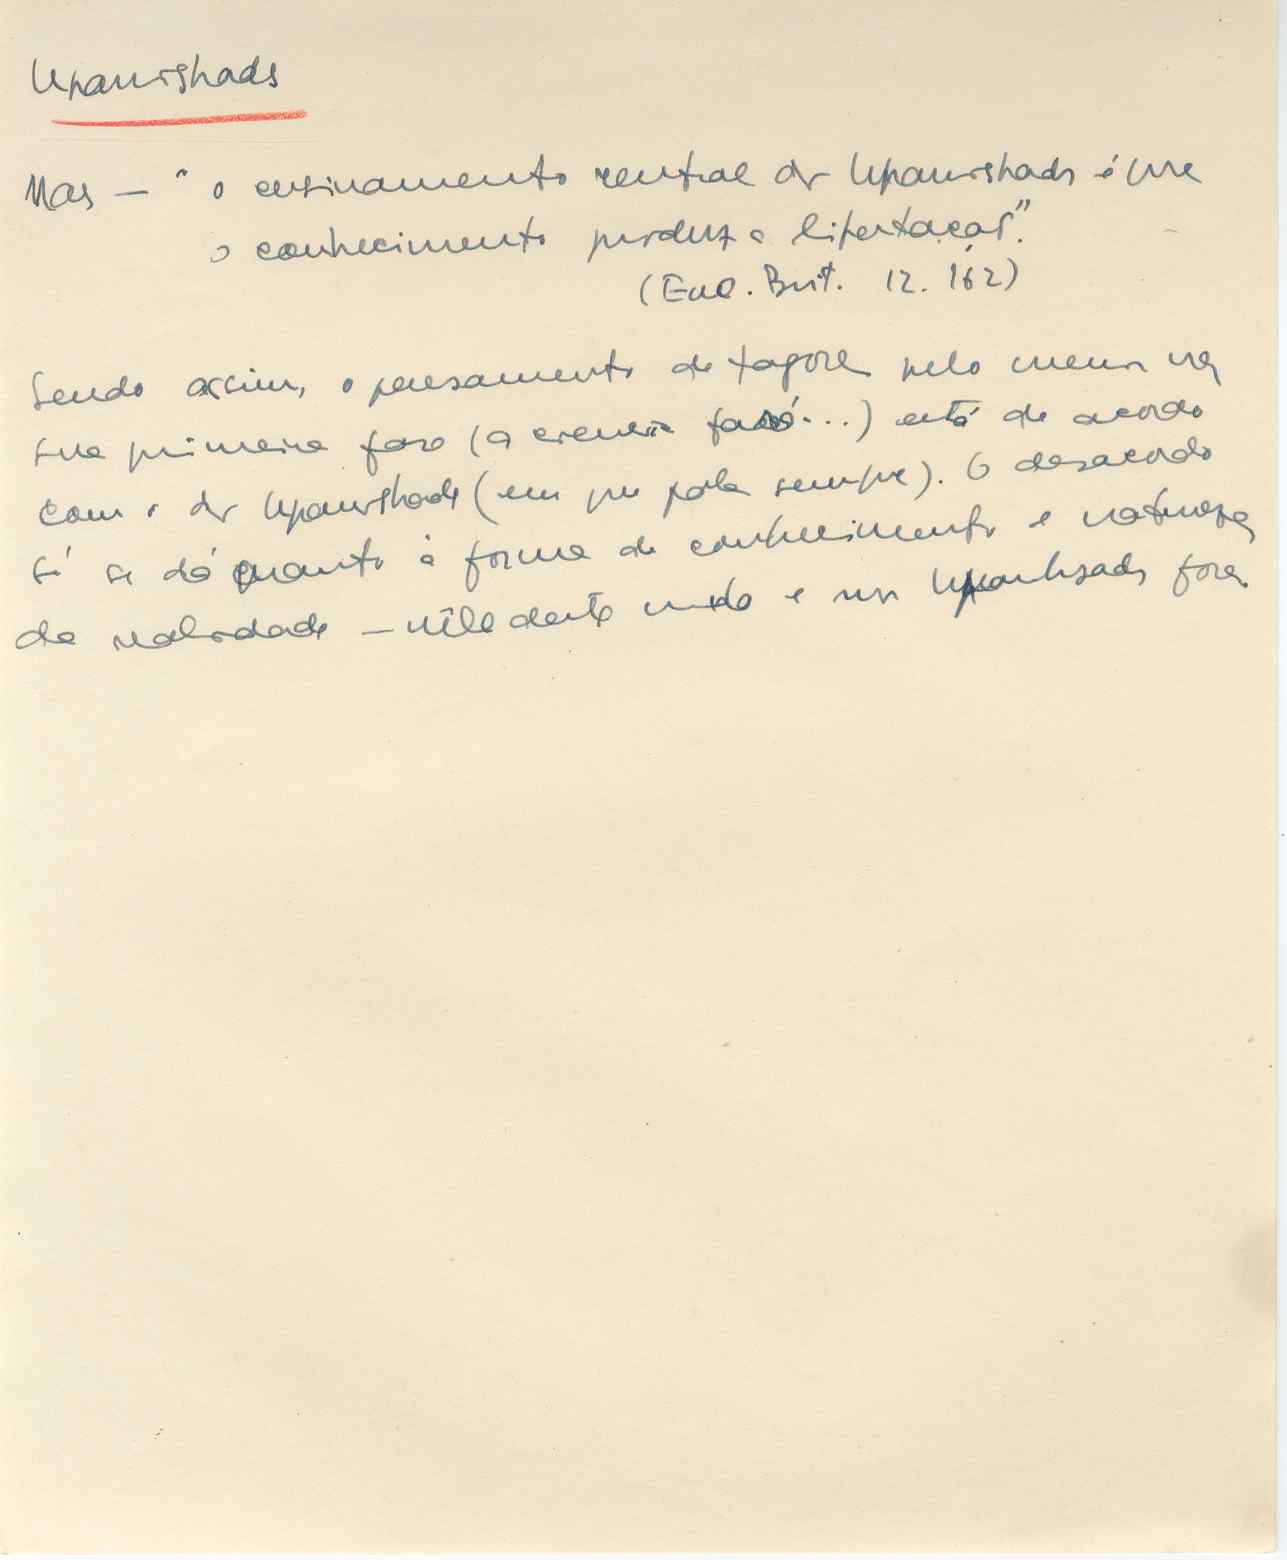 Upanishads
Mas — "o ensinamento central dos Upanishads é que
o conhecimento produz a libertação".
(Enc. Brit. 12. 162)
Sendo assim, o pensamento de Tagore pelo menos na
sua primeira fase (a ciência fará...) está de acordo
com o dos Upanishads (em que fala sempre). O desacordo
só se dá quanto à forma de conhecimento e natureza
da realidade — nele deste mundo e nos Upanishads fora